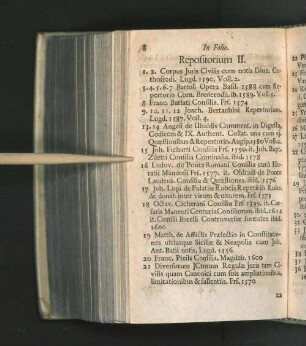 8 In Folio.
Repositorium II.
1. 2. Corpus Juris Civilis cum notis Dion. Gothofredi. Lugd. 1590. Voll. 2.
3. 4. 5. 6. 7 Bartoli Opera Basil. 1588 cum Repertorio Com. ib. 1589. Vol. 5.
8 Franc. Bursati Consilia. Frf. 1574
9. 10. 11. 12 Joach. Repertorium. Lugd. 1587. Voll. 4.
13. 14 Angeli de Ubaldis Comment. in Digesta, Codicem & IX. Authent. Collat. una cum
Quæstionibus & Repertoriis. Aug. 1580 Vol. 2.
15 Joh. Fichardi Consilia Frf. 1590. it. Joh. Bapt.
Ziletti Consilia Criminalia. ibid. 1578
16 Ludov. de Ponte Romani Consilia cura
Mandosii Frf. 1577. it. Oldradi de Ponte
Laudens. Consilia & Quæstiones. ibid. 1576
17 Joh. Lupi de Palatiis Rubicis Repetitio Rubr.
de donat. inter virum & uxorem. Frf. 1573
18 Octav. Catherini Consilia Frf. 1539. it.
Mantuæ Centuria Consiliorum ibid. 1612
it. Camilli Borelli Controversiæ forenses ibid.
1600
19 Matth. de Afflictis Præfectio in Constitutiones utriusque Siciliæ & Neapolis cum Joh.
Ant. Batii notis. Lugd. 1556
20 Franc. Picli Consilia. Magdeb. 1600
21 Diversorum JCtorum Regulæ juris tam Civilis quam Canonici cum suis ampliationibus,
limitationibus & fallentiis. Frf. 1570
22